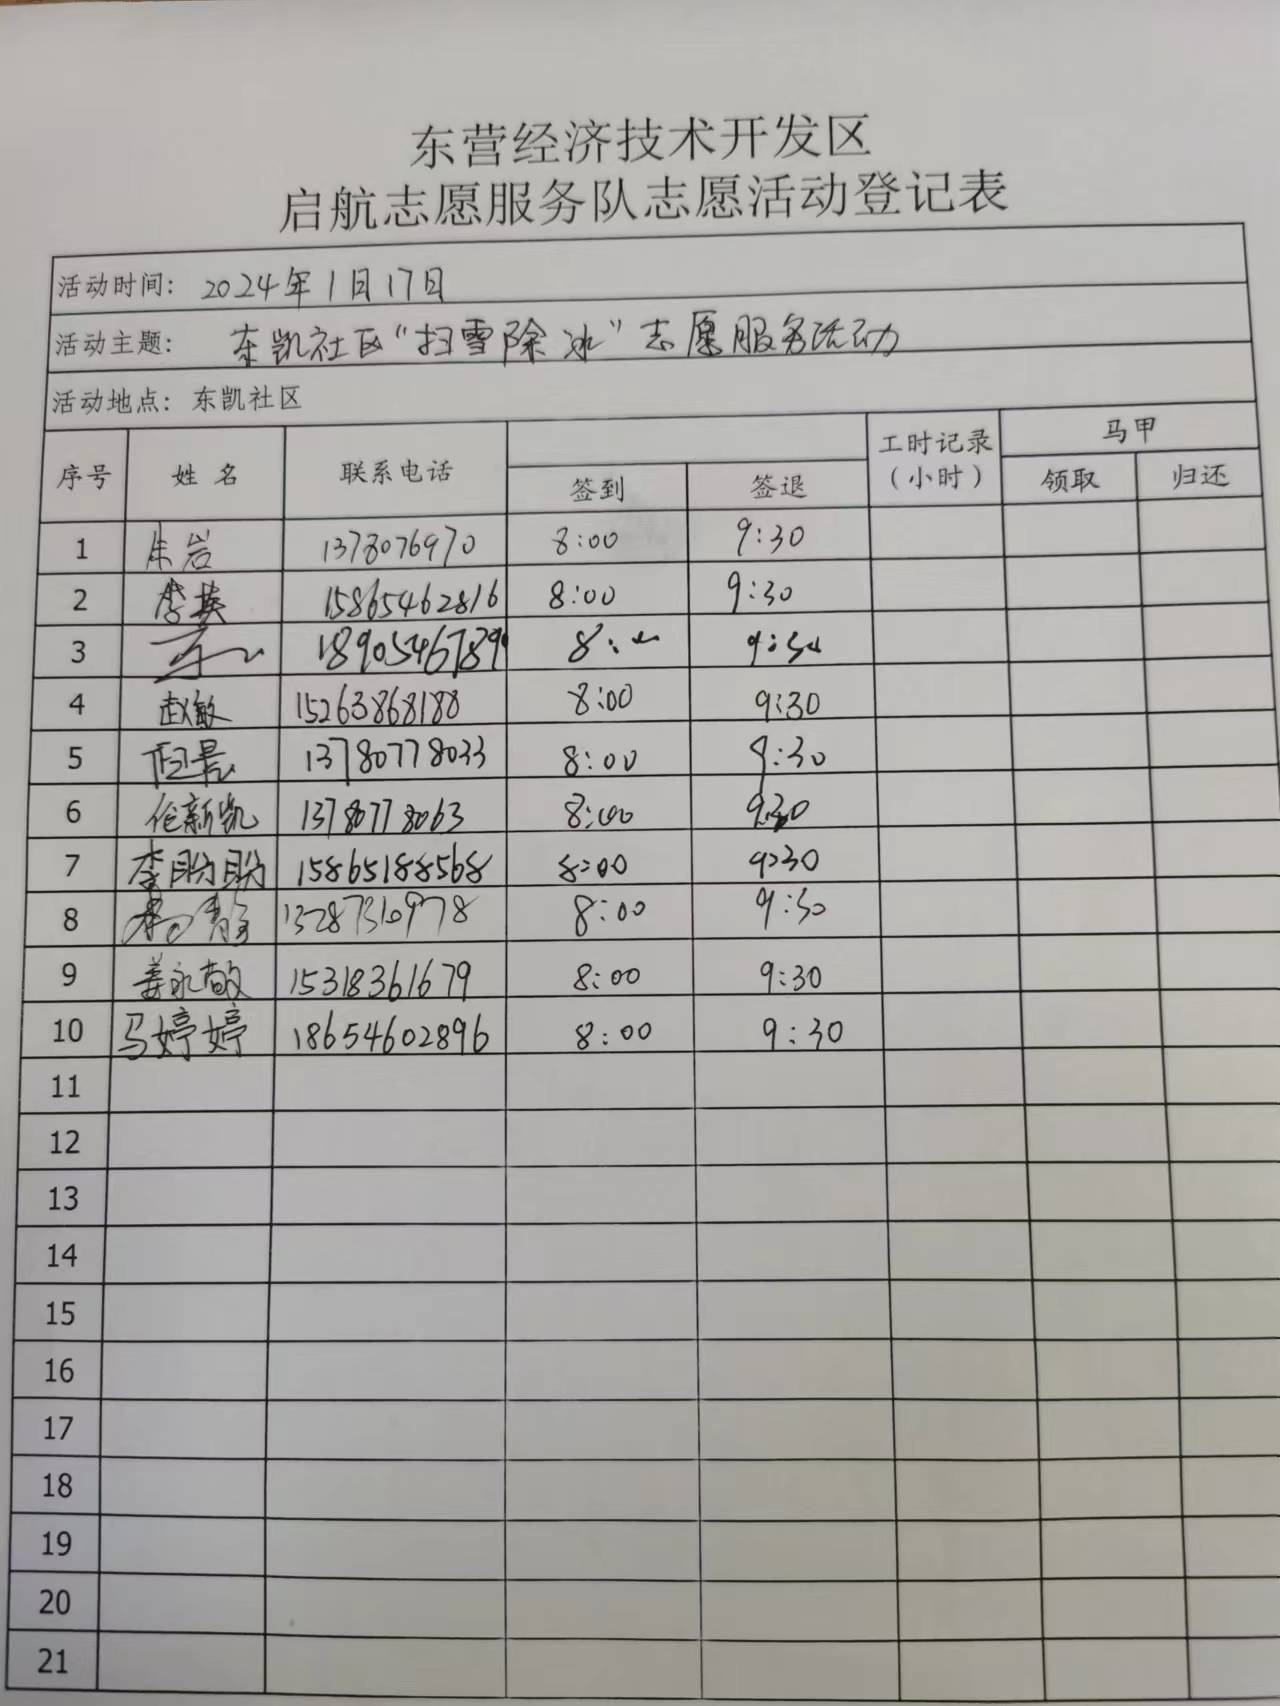 东营经济技术开发区
启航志愿服务队志愿活动登记表
活动时间: 2024年1月17日
活动主题: 东凯社区“扫雪除冰”志愿服务活动
活动地点: 东凯社区
序号 姓名 联系电话 签到 签退 工时记录(小时) 马甲 领取 归还
1 朱岩 1378076970 8:00 9:30
2 李英 15865462816 8:00 9:30
3 1890546789 8: 9:30
4 赵敏 15263868188 8:00 9:30
5 13780778033 8:00 9:30
6 伦新凯 13780778063 8:00 9:30
7 李盼盼 15865188568 8:00 9:30
8 13287310978 8:00 9:30
9 姜永敏 15318361679 8:00 9:30
10 马婷婷 18654602896 8:00 9:30
11
12
13
14
15
16
17
18
19
20
21